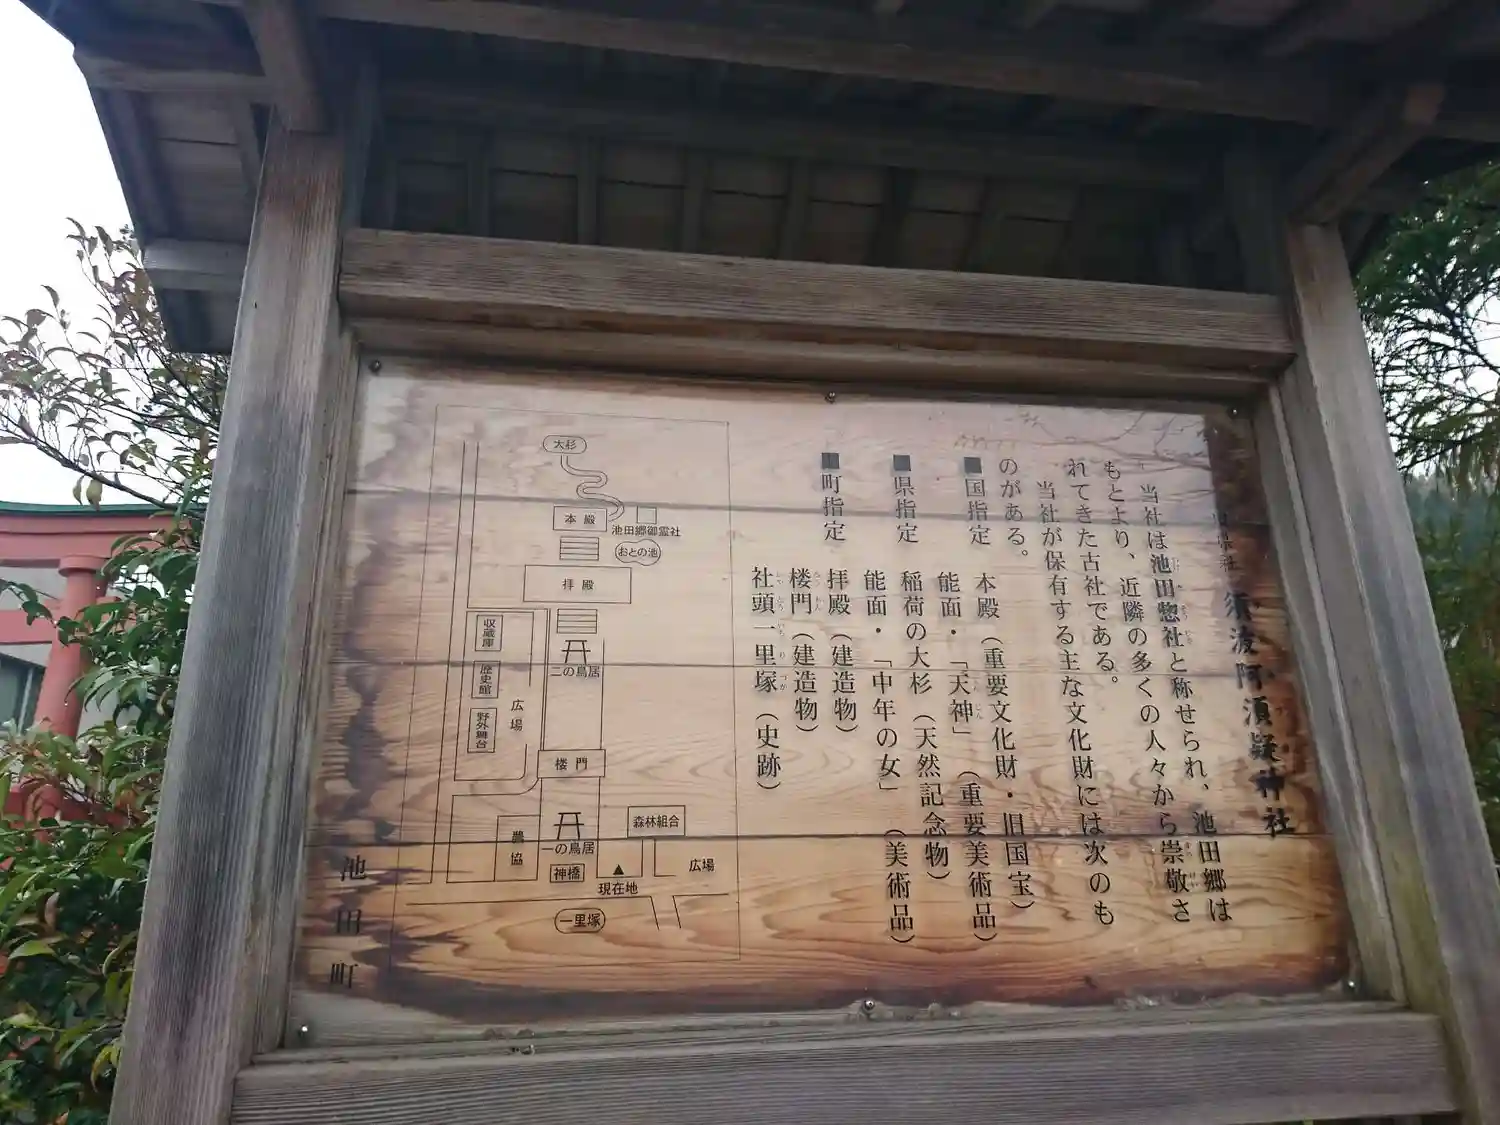 旧県社 須波阿湏疑神社
当社は池田惣社と称せられ、池田郷は
もとより、近隣の多くの人々から崇敬さ
れてきた古社である。
当社が保有する主な文化財には次のも
のがある。
■国指定 本殿（重要文化財・旧国宝）
能面・「天神」（重要美術品）
■県指定 稲荷の大杉（天然記念物）
能面・「中年の女」（美術品）
■町指定 拝殿（建造物）
楼門（建造物）
社頭一里塚（史跡）
大杉
本殿
池田郷御霊社
おとの池
拝殿
収蔵庫
歴史館
野外舞台
広場
二の鳥居
楼門
農協
一の鳥居
神橋
森林組合
広場
▲
現在地
一里塚
池田町